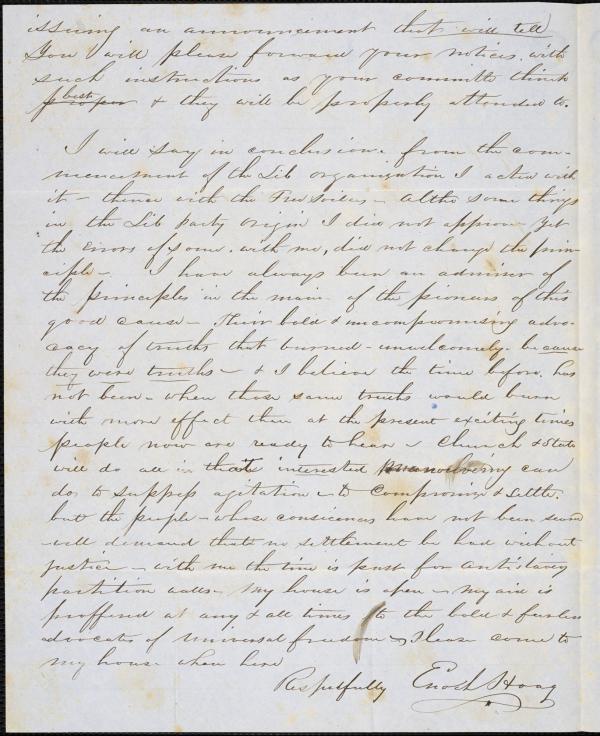 issuing an announcement that will tell
You will please forward your notices. with
such instructions as your committe think
proper best & they will be properly attended to.
I will say in conclusion. from the com-
mencement of the Lib organization I acted with
it - thence with the Free Soilers - altho some things
in the Lib party origin I did not approve - yet
the Errors of some. with me, did not change the prin-
ciple - I have always been an admirer of
the principles in the main of the pioneers of this
good cause - Their bold & uncompromising advo-
cacy of truths that burned - unwelcomely because
they were truths - & I believe the time before. has
not been - when those same truths would burn
with more effect then at the present exciting times
people now are ready to hear - Church & State
will do all in their interested manouvering can
do, to suppress agitation & to compromise & settle.
but the people - whose consicences have not been seard
will demand that no settlement be had without
justice - with me the time is past for antislavery
partition walls - My house is open - my aid is
proffered at any & all times to the bold & fearless
advocates of Universal freedom - Please come to
my house when here
Respectfully Enoch Hoag